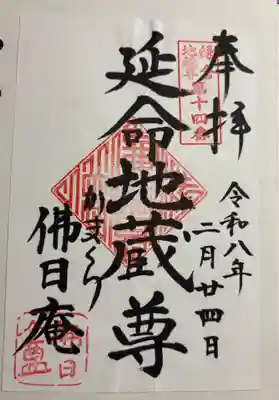 奉拝
鎌倉
地蔵尊第十四番
令和八年
二月廿四日
延命地蔵尊
かまくら
佛日庵